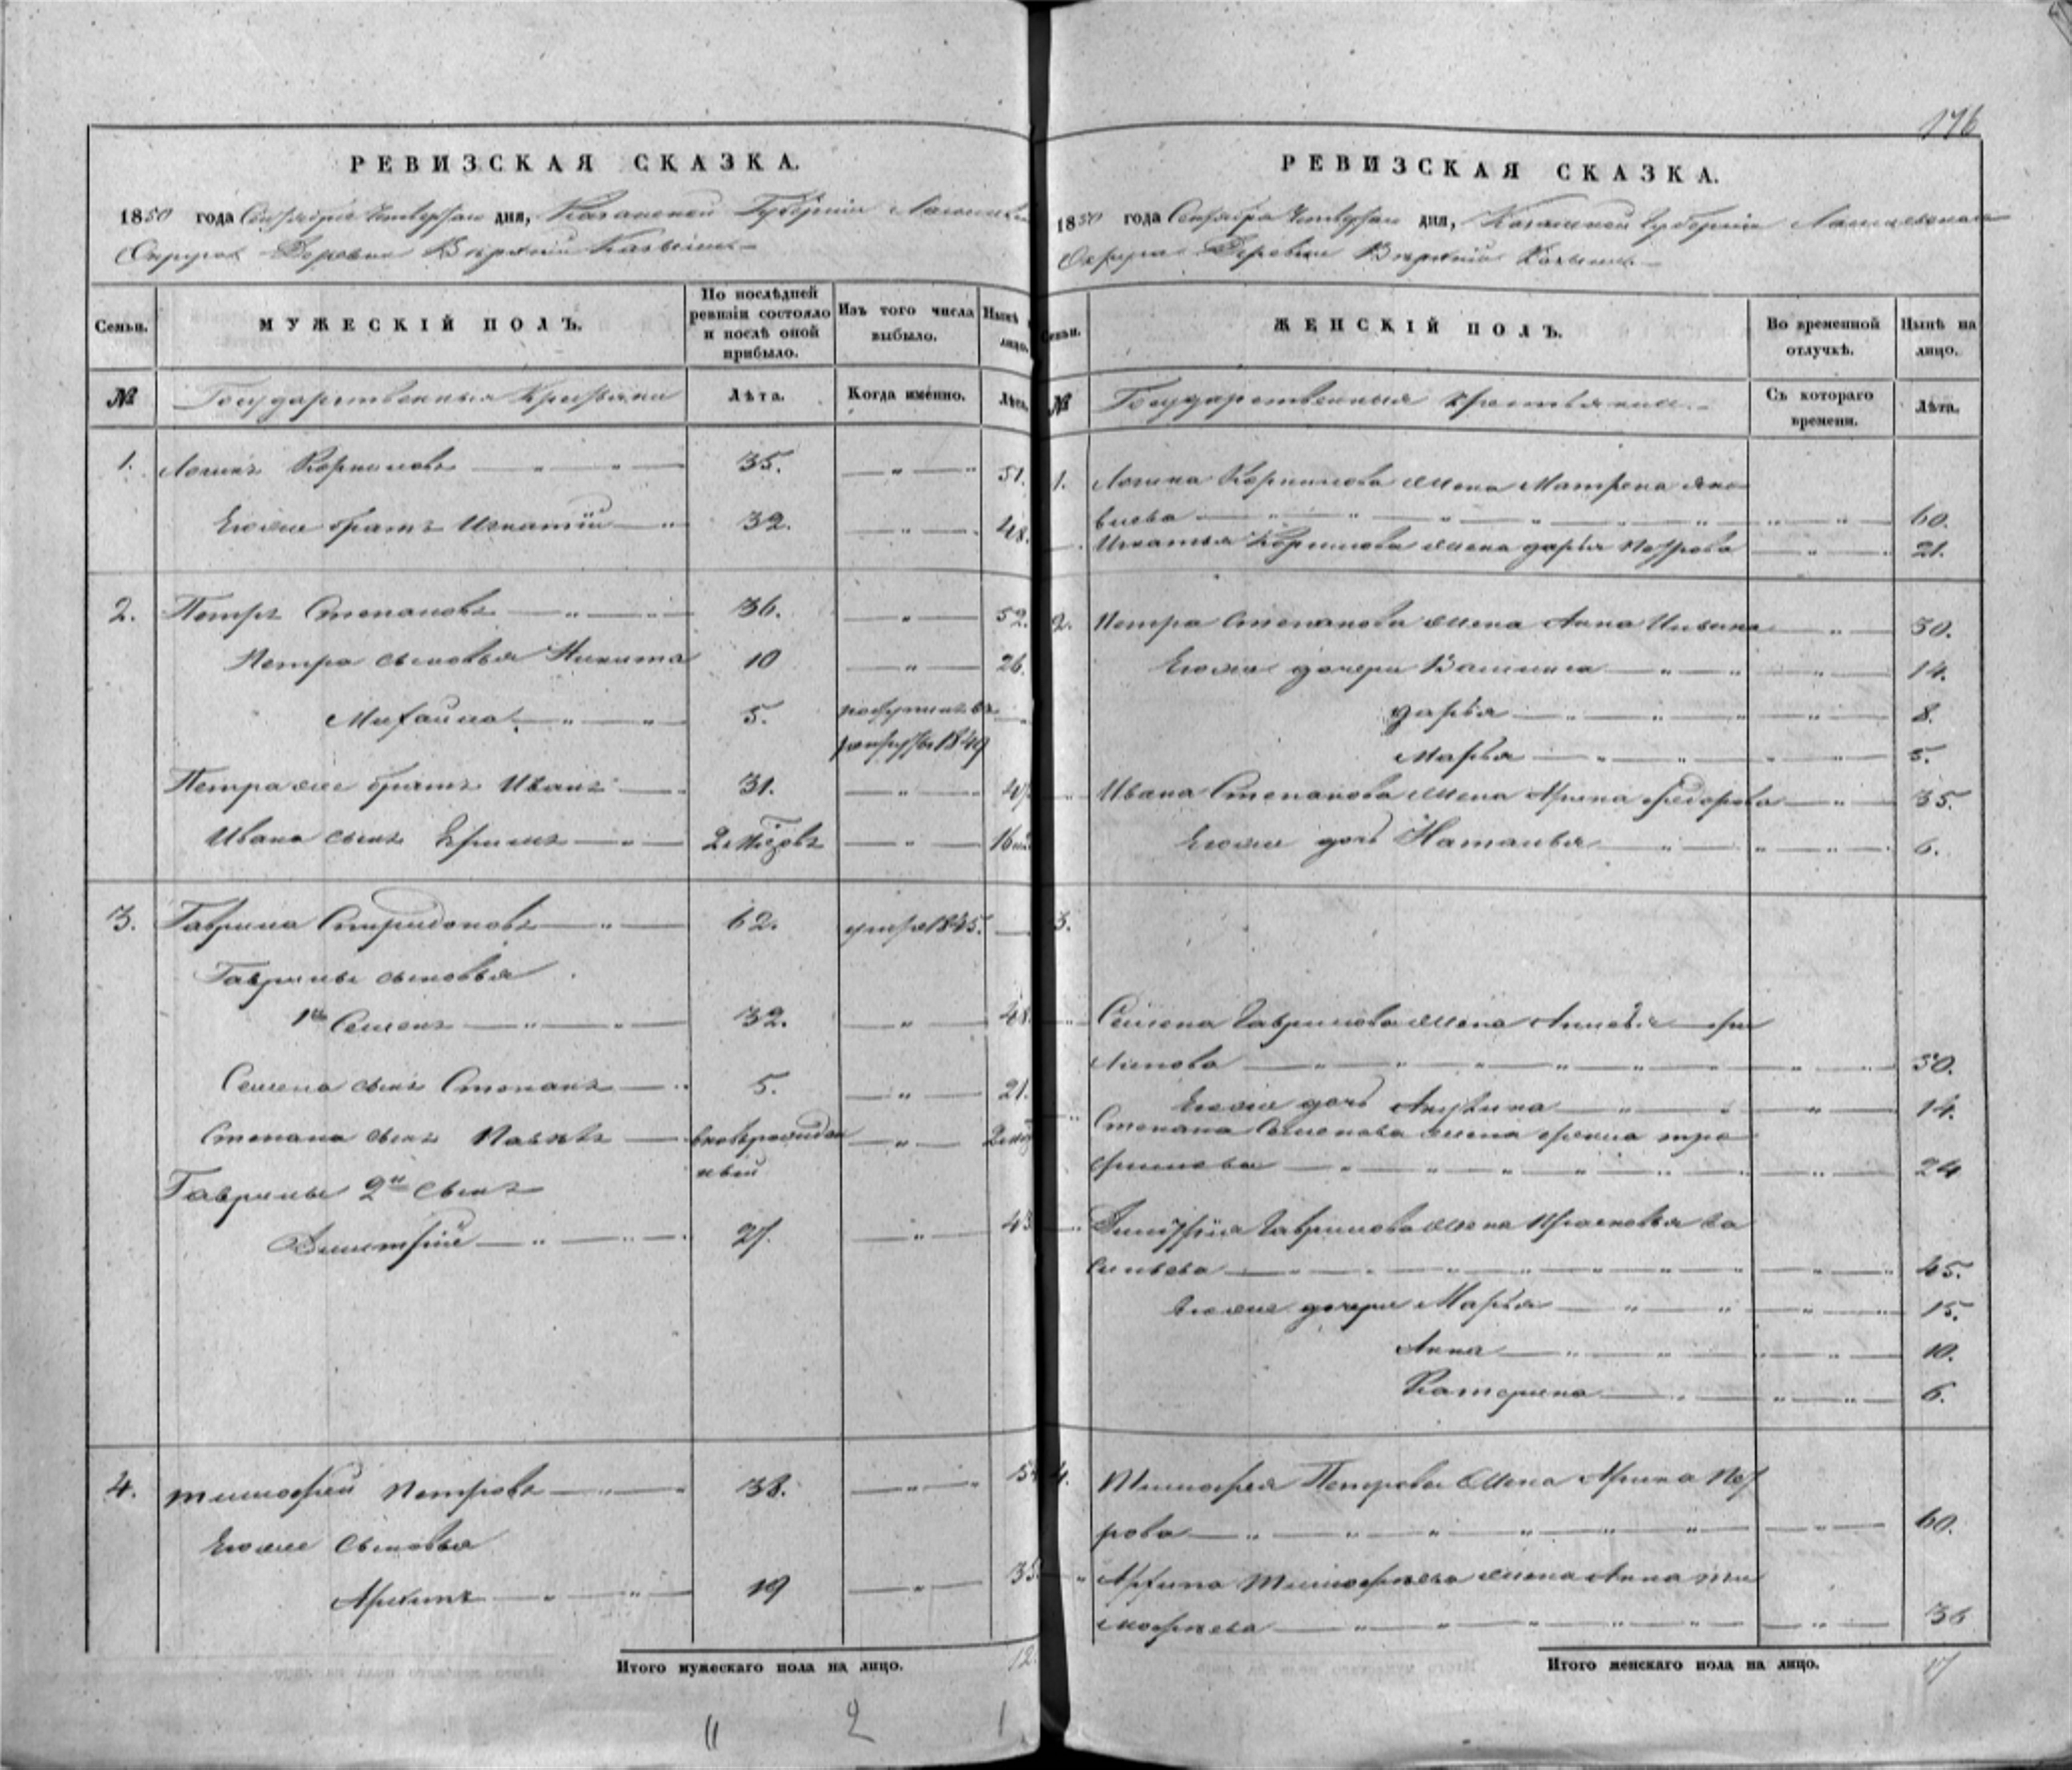 РЕВИЗСКАЯ СКАЗКА.
1850 года Сентября Четвертаго дня, Казанской Губернии
Округа Деревни Верхний Казыель
Семьи.
МУЖЕСКІЙ ПОЛЪ.
По послѣдней ревизіи состояло и послѣ оной прибыло.
Изъ того числа выбыло.
Нынѣ
лицо.
№
Государственныя Крестьяне
Лѣта.
Когда именно.
Лѣта.
1. Логинъ Корниловъ 35. 51.
Егоже братъ Игнатій 32. 48.
2. Петръ Степановъ 36. 52.
Петра сыновья Никита 10 26.
Михайла 5.
1849
Петра же братъ Иванъ 31. 47
Ивана сынъ Ефимъ 16
3. Гаврила Спиридоновъ 62. умре 1845.
Гаврилы сыновья
1й Семенъ 32. 48
Семена сынъ Степанъ 5. 21.
Степана сынъ Павелъ вновьрожден
ный
Гаврилы 2й сынъ
Дмитрій 27. 43
4. Тимофей Петровъ 38. 54
Егоже сыновья
Архипъ 19 35
Итого мужескаго пола на лицо. 12.
11 2 1
176
РЕВИЗСКАЯ СКАЗКА.
1850 года Сентября Четвертаго дня, Казанской Губернии Лаишевскаго
Округа Деревни Верхний
Семьи.
ЖЕНСКІЙ ПОЛЪ.
Во временной отлучкѣ.
Нынѣ на лицо.
№
Государственныя крестьянки
Съ котораго времени.
Лѣта.
1. Логина Корнилова жена Матрена Яко
влева 60.
Игнатья Корнилова жена Дарья Петрова 21.
2. Петра Степанова жена Анна 50.
Егоже дочери 14.
Дарья 8.
Марья 5.
Ивана Степанова жена Арина Федорова 35.
Егоже дочь Наталья 6.
3.
Семена Гаврилова жена
50.
Егоже дочь Акулина 14.
Степана Семенова жена Фекла Тро
фимова 24
Дмитрія Гаврилова жена Прасковья Ва
сильева 45.
Егоже дочери Марья 15.
Анна 10.
Катерина 6.
4. Тимофея Петрова жена Арина Пет
рова 60.
Архипа Тимофѣева жена Анна Ти
мофѣева 36
Итого женскаго пола на лицо. 17